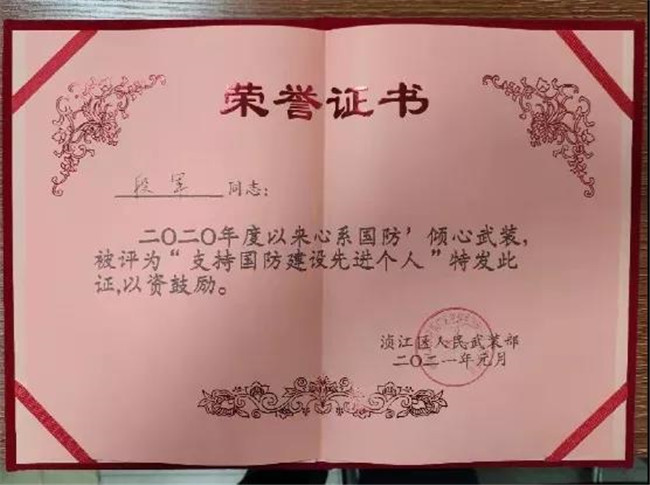 荣誉证书
段军 同志:
二〇二〇年度以来心系国防,倾心武装,
被评为“支持国防建设先进个人”特发此
证,以资鼓励。
浈江区人民武装部
二〇二一年元月